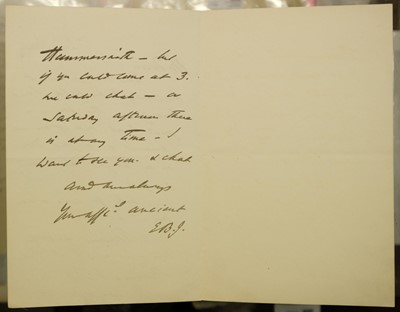 Hammersmith – but
if you could come at 3.
we could chat – or
Saturday afternoon there
is at any time – I
want to see you & chat
and am always
Your aff: ancient
EBJ.